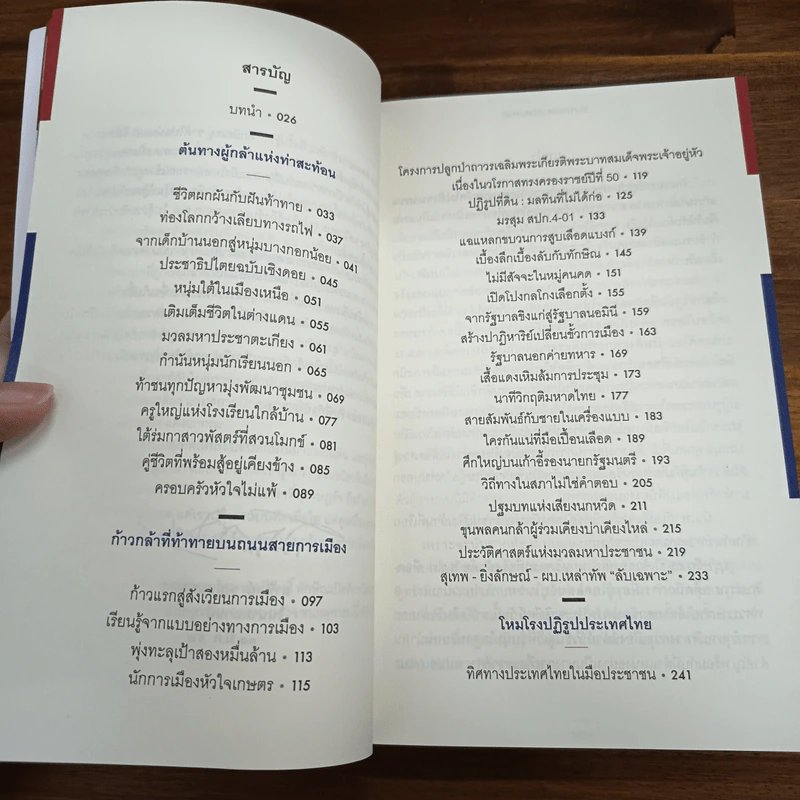 สารบัญ
บทนำ • 026
ต้นทางผู้กล้าแห่งท่าสะท้อน
ชีวิตผกผันกับฝันท้าทาย • 033
ท่องโลกกว้างเลียบทางรถไฟ • 037
จากเด็กบ้านนอกสู่หนุ่มบางกอกน้อย • 041
ประชาธิปไตยฉบับเชิงดอย • 045
หนุ่มใต้ในเมืองเหนือ • 051
เติมเต็มชีวิตในต่างแดน • 055
มวลมหาประชาตะเกียง • 061
กำนันหนุ่มนักเรียนนอก • 065
ท้าชนทุกปัญหามุ่งพัฒนาชุมชน • 069
ครูใหญ่แห่งโรงเรียนใกล้บ้าน • 077
ใต้ร่มกาสาวพัสตร์ที่สวนโมกข์ • 081
คู่ชีวิตที่พร้อมสู้อยู่เคียงข้าง • 085
ครอบครัวหัวใจไม่แพ้ • 089
ก้าวกล้าที่ท้าทายบนถนนสายการเมือง
ก้าวแรกสู่สังเวียนการเมือง • 097
เรียนรู้จากแบบอย่างทางการเมือง • 103
พุ่งทะลุเป้าสองหมื่นล้าน • 113
นักการเมืองหัวใจเกษตร • 115
โครงการปลูกป่าถาวรเฉลิมพระเกียรติพระบาทสมเด็จพระเจ้าอยู่หัว
เนื่องในวโรกาสทรงครองราชย์ปีที่ 50 • 119
ปฏิรูปที่ดิน : มลทินที่ไม่ได้ก่อ • 125
มรสุม สปก.4-01 • 133
แฉแหลกขบวนการสูบเลือดแบงก์ • 139
เบื้องลึกเบื้องลับกับทักษิณ • 145
ไม่มีสัจจะในหมู่คนคด • 151
เปิดโปงกลโกงเลือกตั้ง • 155
จากรัฐบาลขิงแก่สู่รัฐบาลนอมินี • 159
สร้างปาฏิหาริย์เปลี่ยนขั้วการเมือง • 163
รัฐบาลนอกค่ายทหาร • 169
เสื้อแดงเหิมล้มการประชุม • 173
นาทีวิกฤติมหาดไทย • 177
สายสัมพันธ์กับชายในเครื่องแบบ • 183
ใครกันแน่ที่มือเปื้อนเลือด • 189
ศึกใหญ่บนเก้าอี้รองนายกรัฐมนตรี • 193
วิถีทางในสภาไม่ใช่คำตอบ • 205
ปฐมบทแห่งเสียงนกหวีด • 211
ขุนพลคนกล้าผู้ร่วมเคียงบ่าเคียงไหล่ • 215
ประวัติศาสตร์แห่งมวลมหาประชาชน • 219
สุเทพ - ยิ่งลักษณ์ - ผบ.เหล่าทัพ "ลับเฉพาะ" • 233
โหมโรงปฏิรูปประเทศไทย
ทิศทางประเทศไทยในมือประชาชน • 241